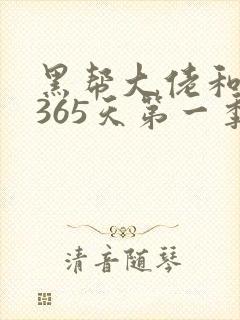 黑帮大佬和
365天第一季
清音随琴